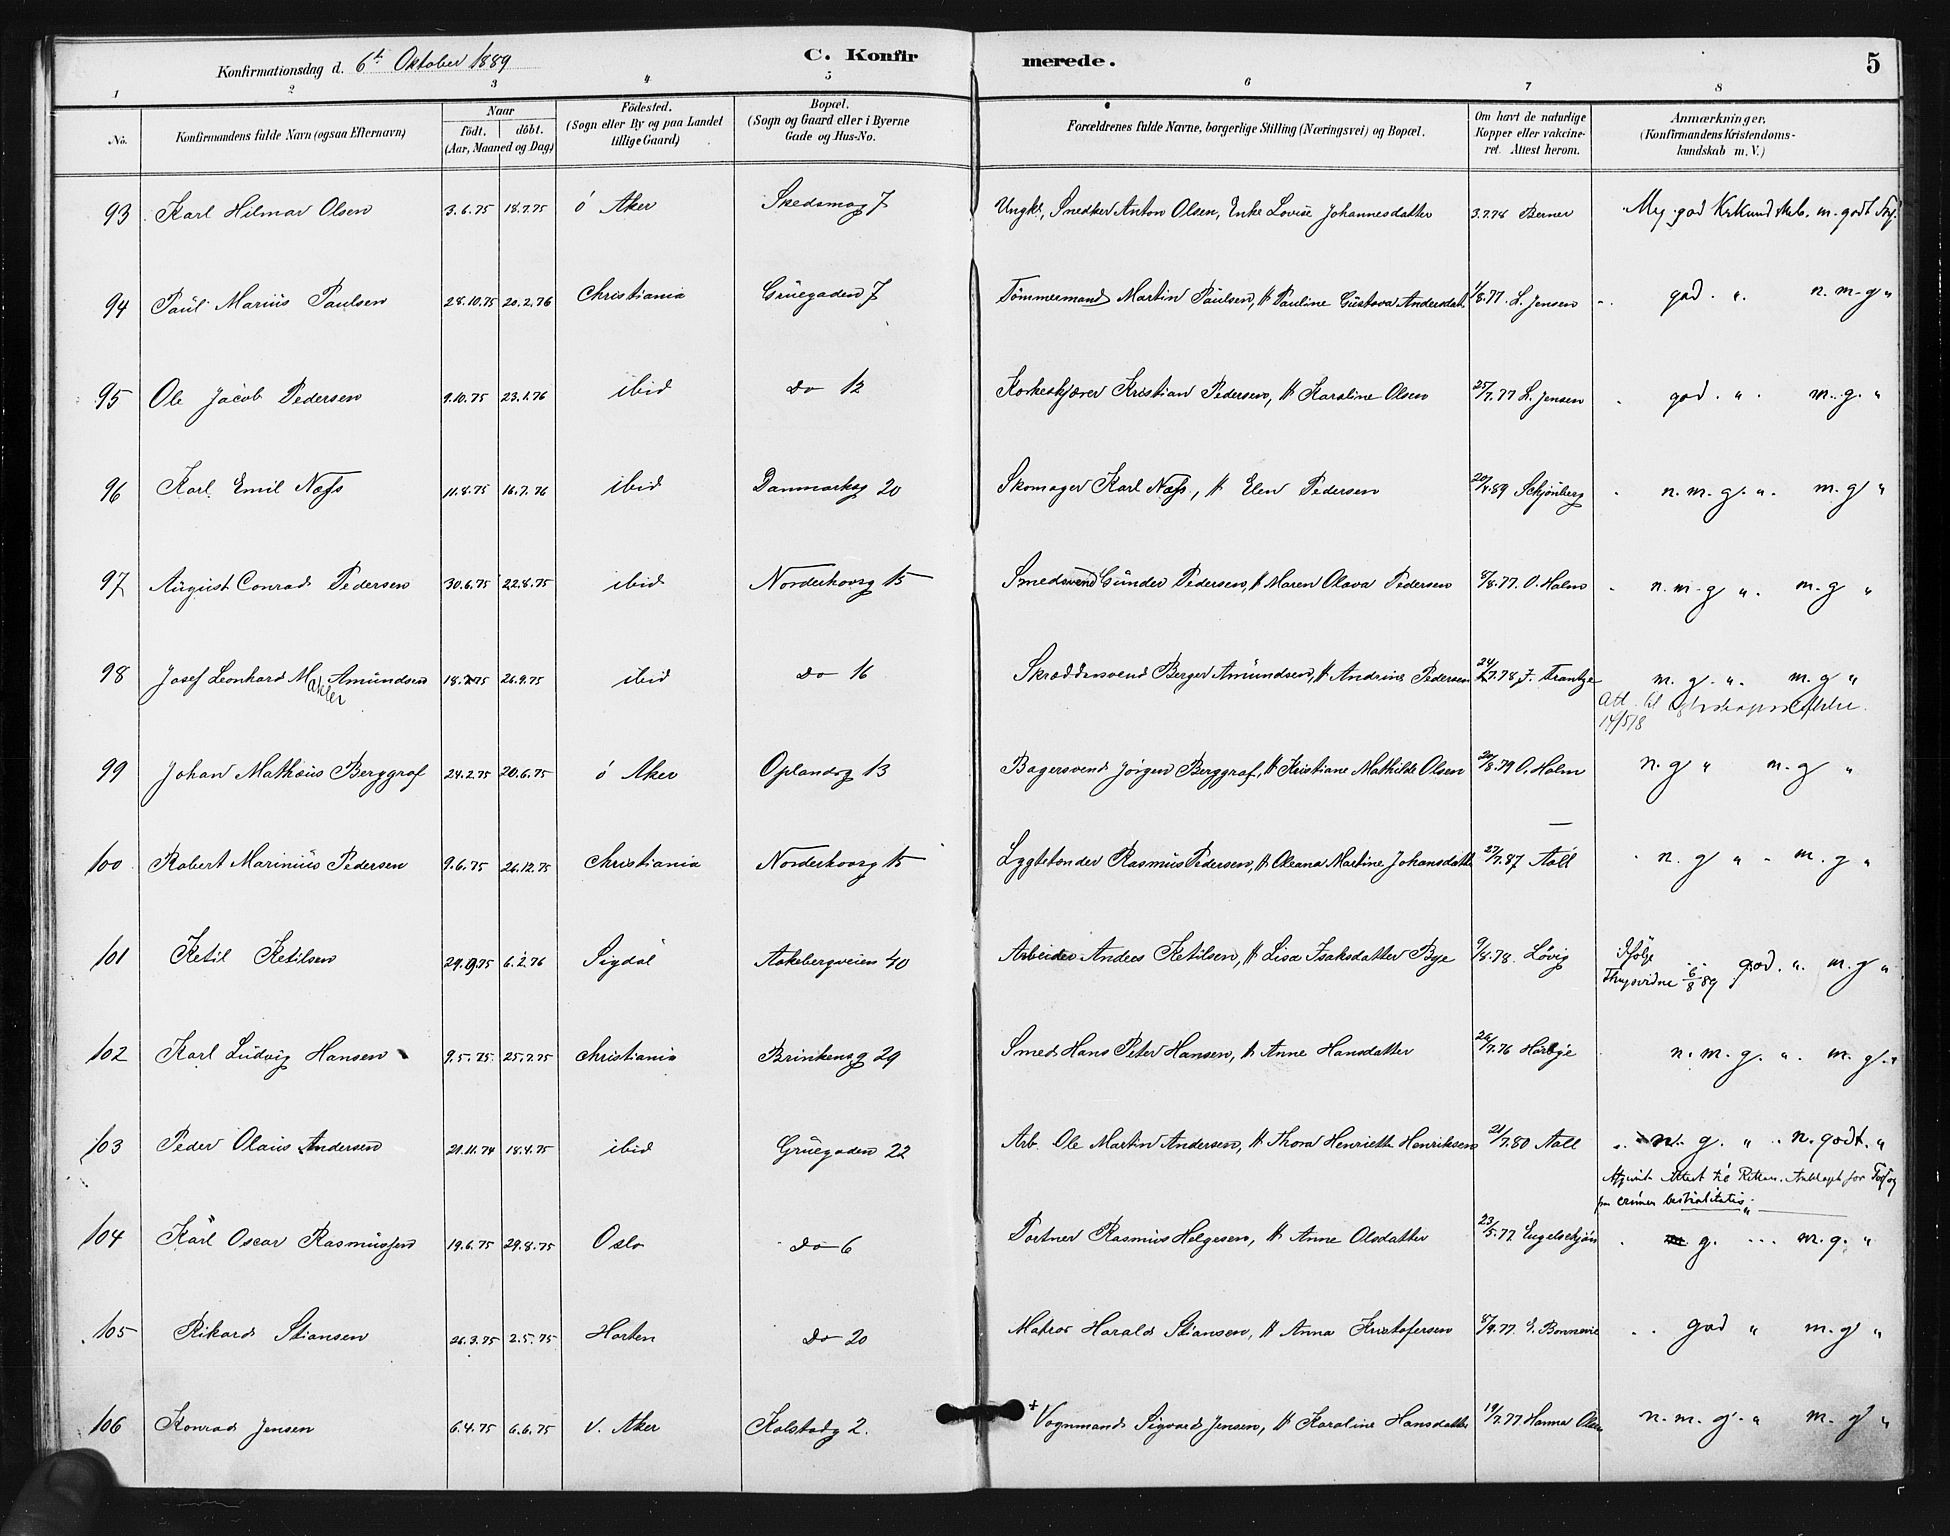 Konfirmationsdag d. 6te Oktober 1889 C. Konfirmerede. 5
1 2 3 4 5 6 7 8
No. Konfirmandens fulde Navn (ogsaa Efternavn) Naar födt. döbt. (Aar, Maaned og Dag) Födested. (Sogn eller By og paa Landet tillige Gaard) Bopæl. (Sogn og Gaard eller i Byerne Gade og Hus-No. Forældrenes fulde Navne, borgerlige Stilling (Næringsvei) og Bopæl. Om havt de naturlige Kopper eller vakcineret. Attest herom. Anmærkninger. (Konfirmandens Kristendomskundskab m. V.)
93 Karl Hilmar Olsen 3.6.75 18.7.75 ö Aker Skedsmog 7 Ungk., Snedker Anton Olsen, Enke Lovise Johannesdatter 3.7.78 Berner Meg. god Kr.kundskab. m. godt
94 Paul Marius Paulsen 28.10.75 20.2.76 Christiania Grüegaden 7 Tömmermand Martin Paulsen, H Pauline Gustava Andersdat 1/8.77. L. Jensen god. " n. m. g "
95 Ole Jacob Pedersen 9.10.75 23.1.76 ibid do 12 Korkeskjærer Kristian Pedersen, H Karoline Olsen 25/7.77 L. Jensen god. " m. g. "
96 Karl Emil Næss 11.8.75 16.7.76 ibid Danmarksg 20 Skomager Karl Næss, H Elen Pedersen 20/4.89 Schjönberg n. m. g. " m. g "
97 August Conrad Pedersen 30.6.75 22.8.75 ibid Norderhovsg 15 Smedsvend Gunder Pedersen, H Maren Olava Pedersen 8/8.77. O. Holm n. m. g " m. g "
98 Josef Leonhard M Amundsen 18.7.75 26.9.75 ibid do 16 Skræddersvend Berger Amundsen, H Andrine Pedersen 24/7.78 J. Frantze m. g. " m. g "
Att. til
14/5 18
99 Johan Mathæus Berggraf 24.2.75 20.6.75 ö Aker Oplandsg 13 Bagersvend Jörgen Berggraf, H Kristiane Mathilde Olsen 20/8.79 O. Holm n. g " m. g "
100 Robert Marinius Pedersen 9.6.75 26.12.75 Christiania Norderhovsg 15 Lygtetender Rasmus Pedersen, H Oleana Martine Johansdatt 27/7.87 Aall n. g " m. g "
101 Ketil Ketilsen 29.9.75 6.2.76 Sigdal Aakebergveien 40 Arbeider Andres Ketilsen, H Lisa Isaksdatter Bye 9/8.78. Lövig Ifölge 6/8 89 god. " m. g "
102 Karl Ludvig Hansen 9.5.75. 25.7.75 Christiania Brinkensg 29 Smed Hans Peter Hansen, H Anne Hansdatter 26/7.76 Hörbye n. m. g. " m. g. "
103 Peder Olaus Andersen 21.11.74 18.4.75 ibid Grüegaden 22 Arb. Ole Martin Andersen, H Thora Henriette Henriksen 21/7.80 Aall n. g. " n. godt. "
Afgivet Attest til for
crimen bestialitatis.
104 Karl Oscar Rasmussen 19.6.75 29.8.75 Oslo do 6 Portner Rasmus Helgesen, H Anne Olsdatter 23/5.77 Engelschjön g. m. g. "
105 Rikard Stiansen 26.3.75 2.5.75 Horten do 20 Matros Harald Stiansen, H Anna Kristofersen 8/9.77. E. Bonnevie god " m. g "
106 Konrad Jensen 6.4.75 6.6.75 V. Aker Kolstadg 2. Vognmand Sigvard Jensen, H Karoline Hansdatter 19/7.77 Hanna Olsen n. m. g. " m. g "